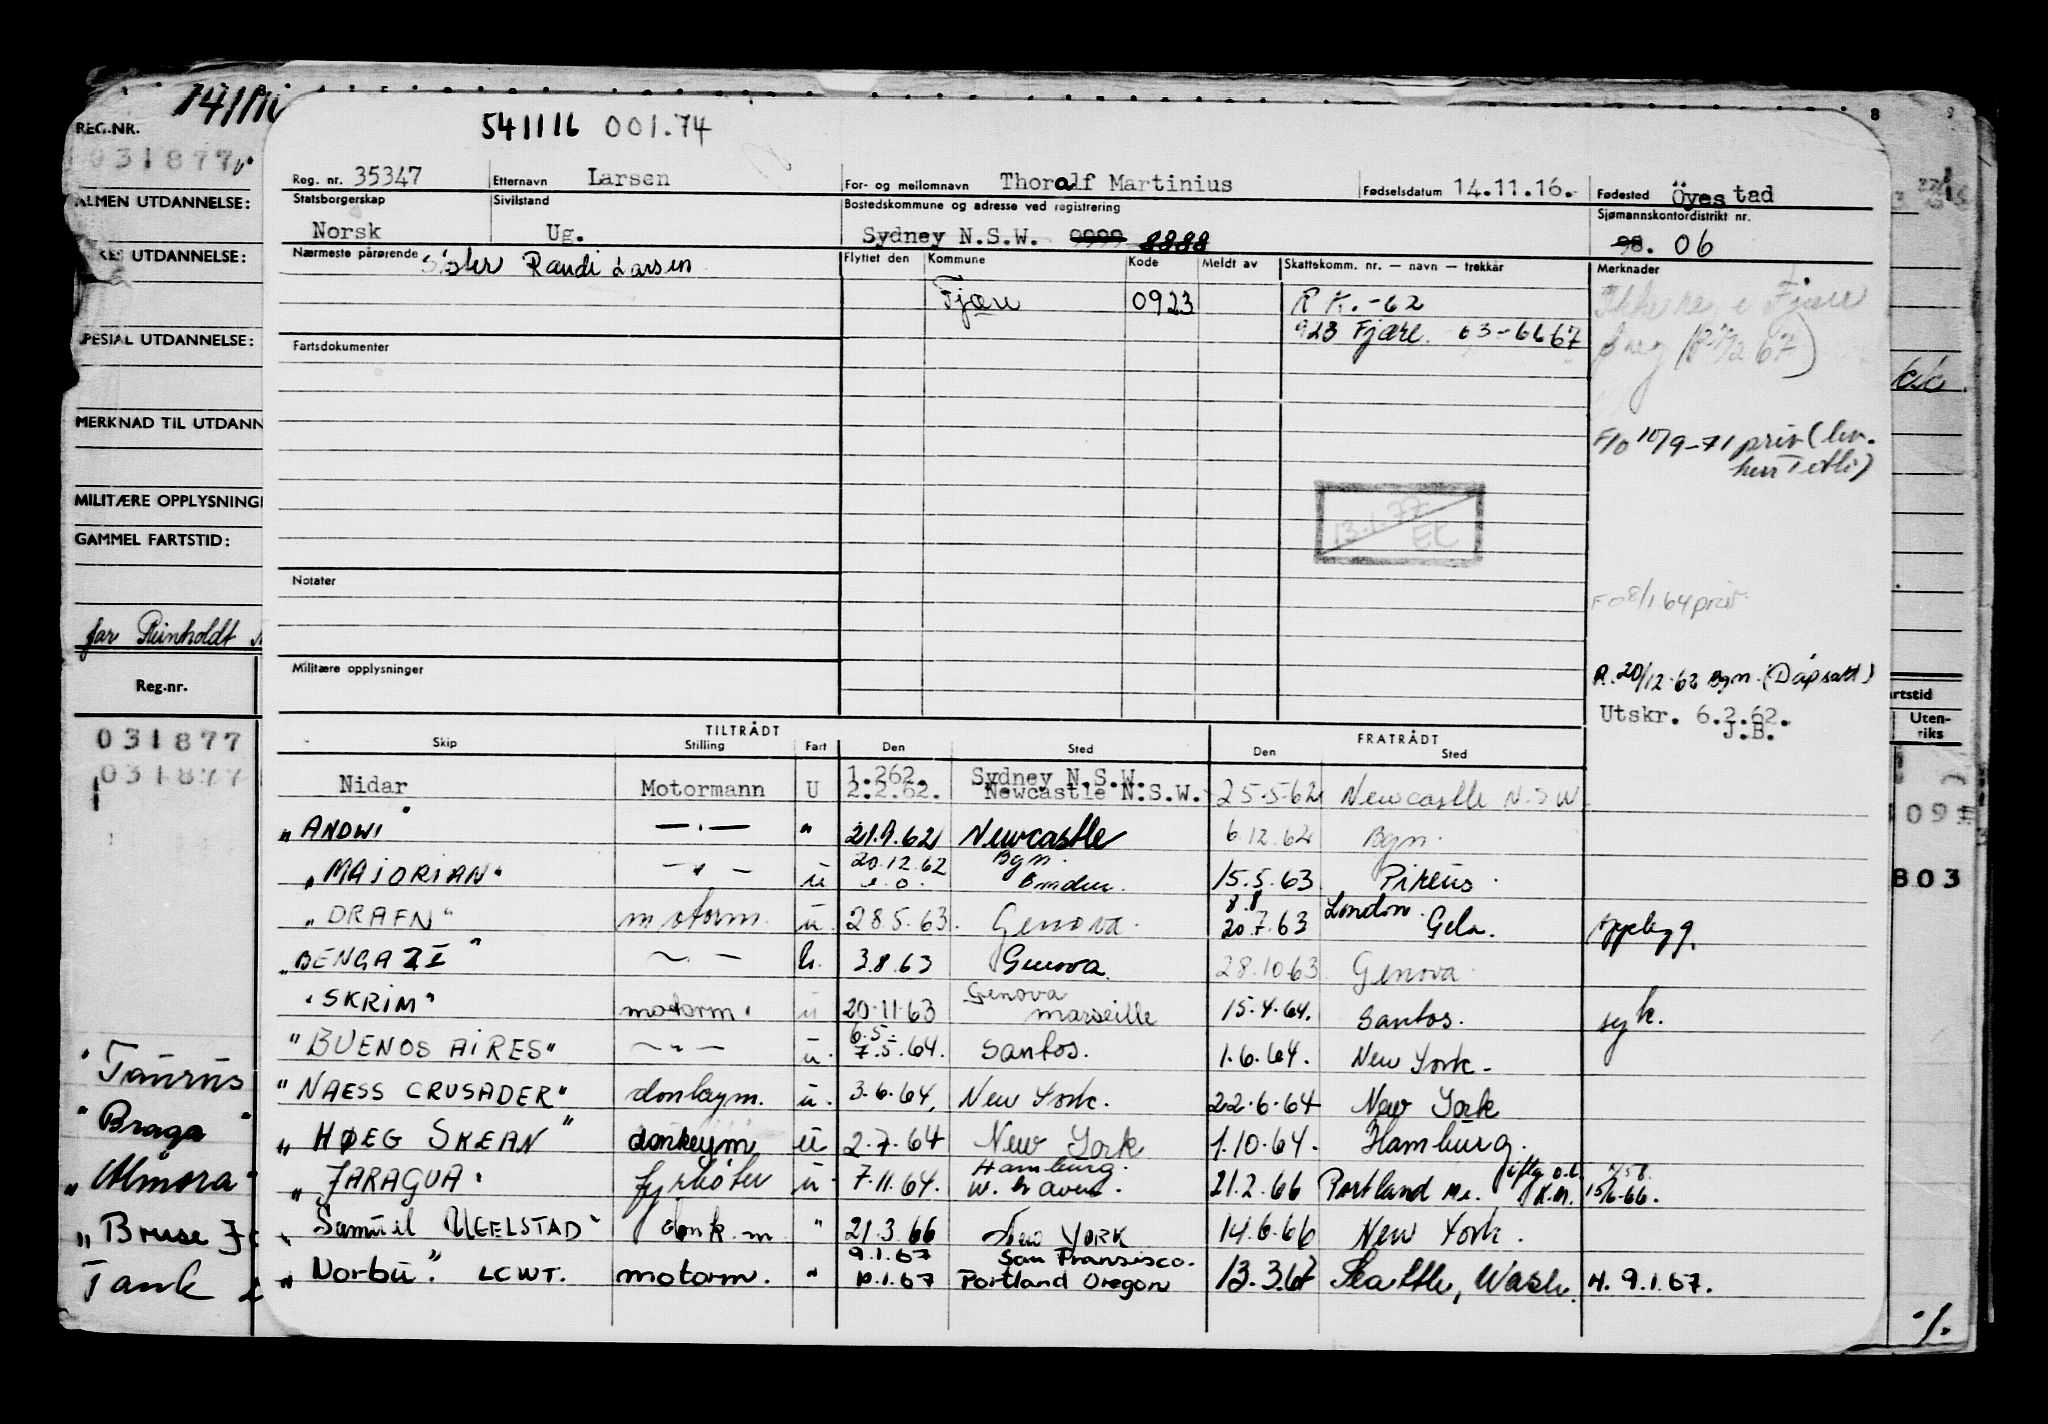 REG.NR.
031877
ALMEN UTDANNELSE:
UTDANNELSE:
SPESIAL UTDANNELSE:
MERKNAD TIL UTDANN
MILITÆRE OPPLYSNINGE
GAMMEL FARTSTID:
far Reinholdt
Reg.nr.
031877
031877
"Taurus
"Braga"
"Almora"
"Bruse
Tank
541116 001.74
8
Reg. nr. 35347 Etternavn Larsen For- og mellomnavn Thoralf Martinius Fødselsdatum 14.11.16.- Fødested Öyestad
Statsborgerskap Sivilstand Bostedskommune og adresse ved registrering Sjømannskontordistrikt nr.
Norsk Ug. Sydney N.S.W. 9999 8888 98. 06
Nærmeste pårørende Søster Randi Larsen Flyttet den Kommune Kode Meldt av Skattekomm. nr. — navn — trekkår Merknader
Fjære 0923 R K.-62
923 Fjære. 63-6667
Fartsdokumenter
F/O 10/9-71 priv (lev.
13.1.77
EC
Notater
FO 8/1.64 priv.
Militære opplysninger
R. 20/12.62 Bgn. (Dåpsatt)
Utskr. 6.2.62.
J.B.
TILTRÅDT FRATRÅDT
Skip Stilling Fart Den Sted Den Sted
Nidar Motormann U 1.262. Sydney N.S.W.
2.2.62. Newcastle N.S.W. 25.5.62 Newcastle N.S.W
"ANDWI" —"— " 21.9.62 Newcastle 6.12.62 Bgn.
"MAJORIAN" —"— u 20.12.62 Bgn.
e.o. Emden. 15.5.63 Pireus.
"DRAFN" motorm. u. 28.5.63. Genova. 8.8 London.
20.7.63 Gela. oppbygg.
"BENGAZI" —"— h. 3.8.63 Genova. 28.10.63 Genova.
"SKRIM" motorm. u 20.11.63 Genova
marseille 15.4.64. Santos. syk.
"BUENOS AIRES" —"— u. 6.5.
7.5.64. Santos. 1.6.64. New York.
"NAESS CRUSADER" donkeym. u. 3.6.64. New York. 22.6.64 New York
"HØEG SKEAN" donkeym u 2.7.64 New York 1.10.64. Hamburg.
"JARAGUA" fyrbøter u 7.11.64. Hamburg.
W. Haven. 21.2.66 Portland Me.
"Samuel UGELSTAD" donk.m " 21.3.66 New YORK 14.6.66 New York.
"Norbu". LCWT. motorm. " 9.1.67 San Fransisco.
10.1.67 Portland Oregon 13.3.67 Seattle, Wash. H. 9.1.67.
rtstid
Uten-
riks
803